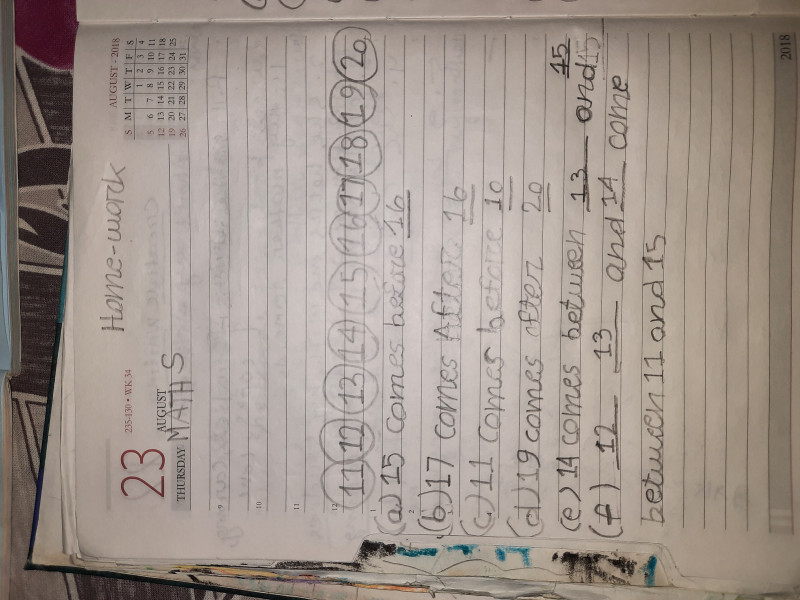 Home-work
AUGUST - 2018
S M T W T F S
1 2 3 4
5 6 7 8 9 10 11
12 13 14 15 16 17 18
19 20 21 22 23 24 25
26 27 28 29 30 31
23
235-130 • WK 34
AUGUST
THURSDAY
MATHS
9
10
11
12
11 12 13 14 15 16 17 18 19 20
1
(a) 15 comes before 16
2
(b) 17 comes After 16
(c) 11 comes before 10
(d) 19 comes after 20
(e) 14 comes between 13 and 15 15
(f) 12 13 and 14 come
between 11 and 15
2018